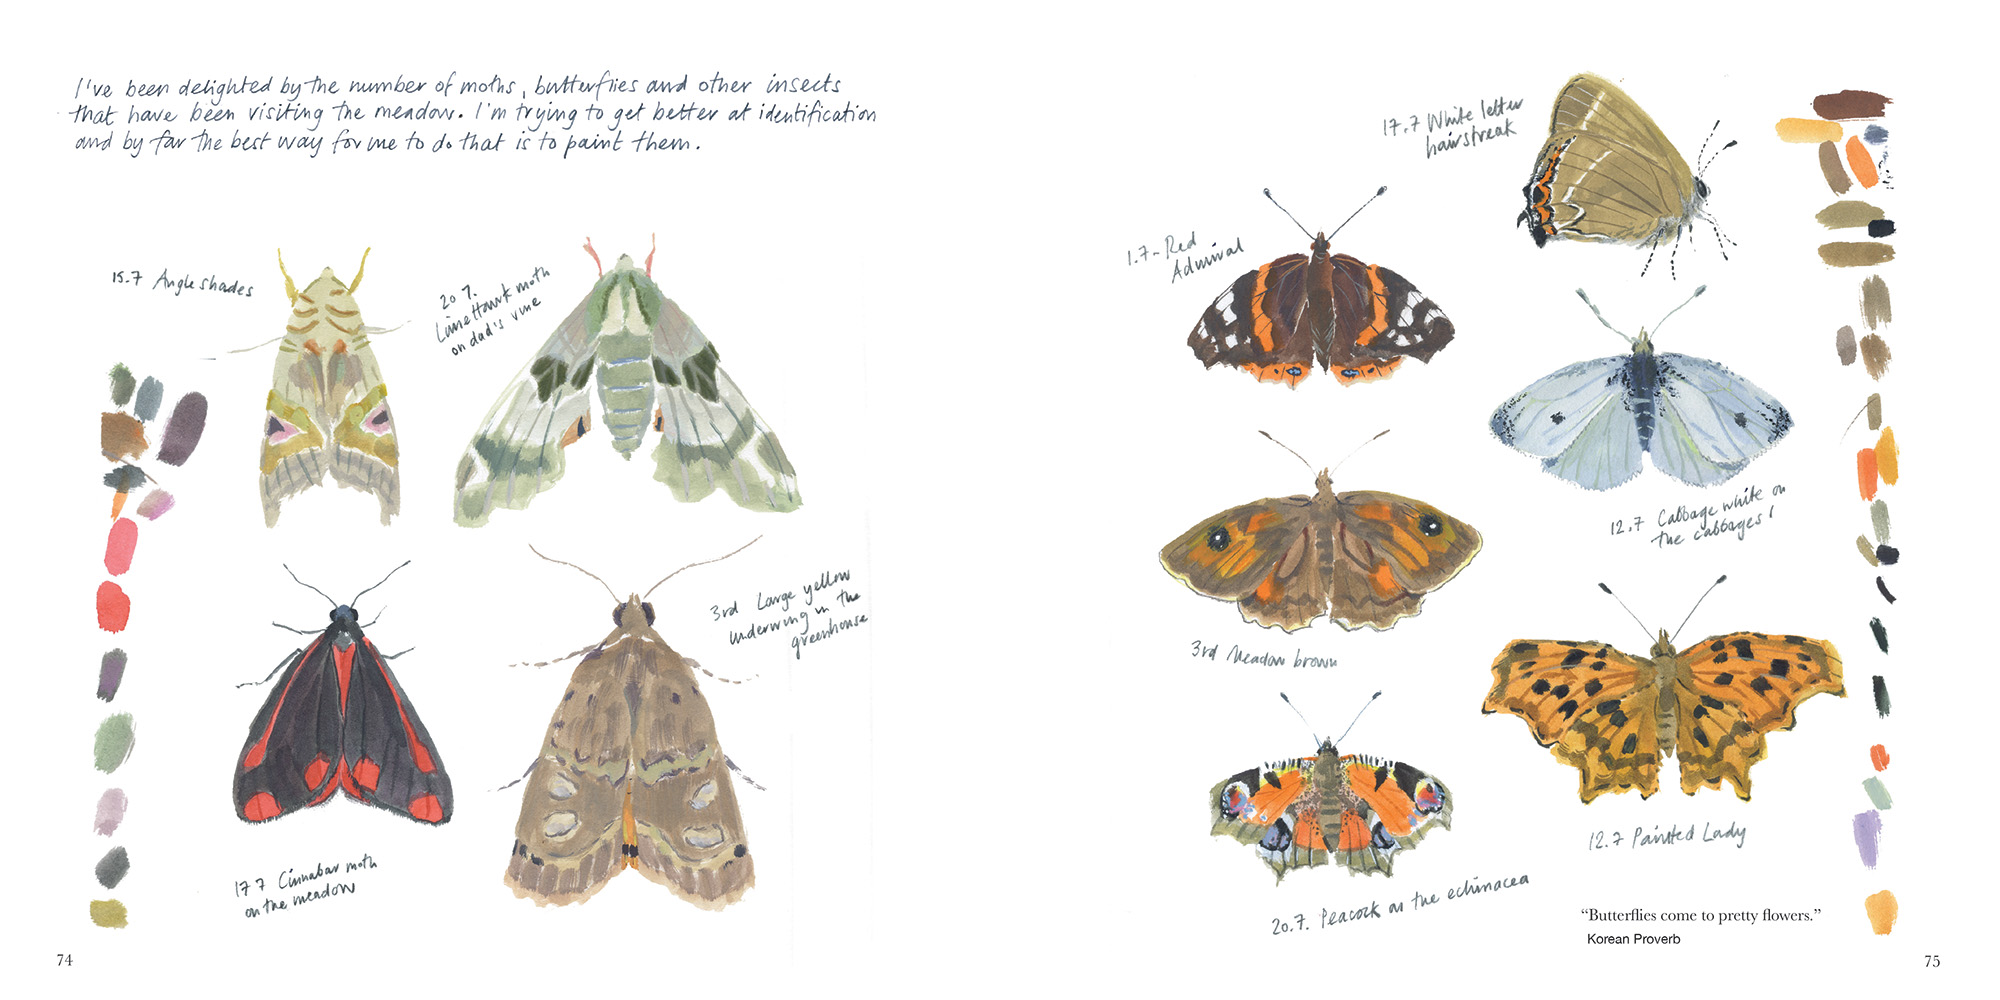 I've been delighted by the number of moths, butterflies and other insects
that have been visiting the meadow. I'm trying to get better at identification
and by far the best way for me to do that is to paint them.
15.7 Angle shades
20 7.
Lime Hawk moth
on dad's vine
17 7 Cinnabar moth
on the meadow
3rd Large yellow
underwing in the
greenhouse
74
17.7 White letter
hairstreak
1.7 - Red
Admiral
12.7 Cabbage white on
the cabbages!
3rd Meadow brown
12.7 Painted Lady
20.7. Peacock on the echinacea
“Butterflies come to pretty flowers.”
Korean Proverb
75